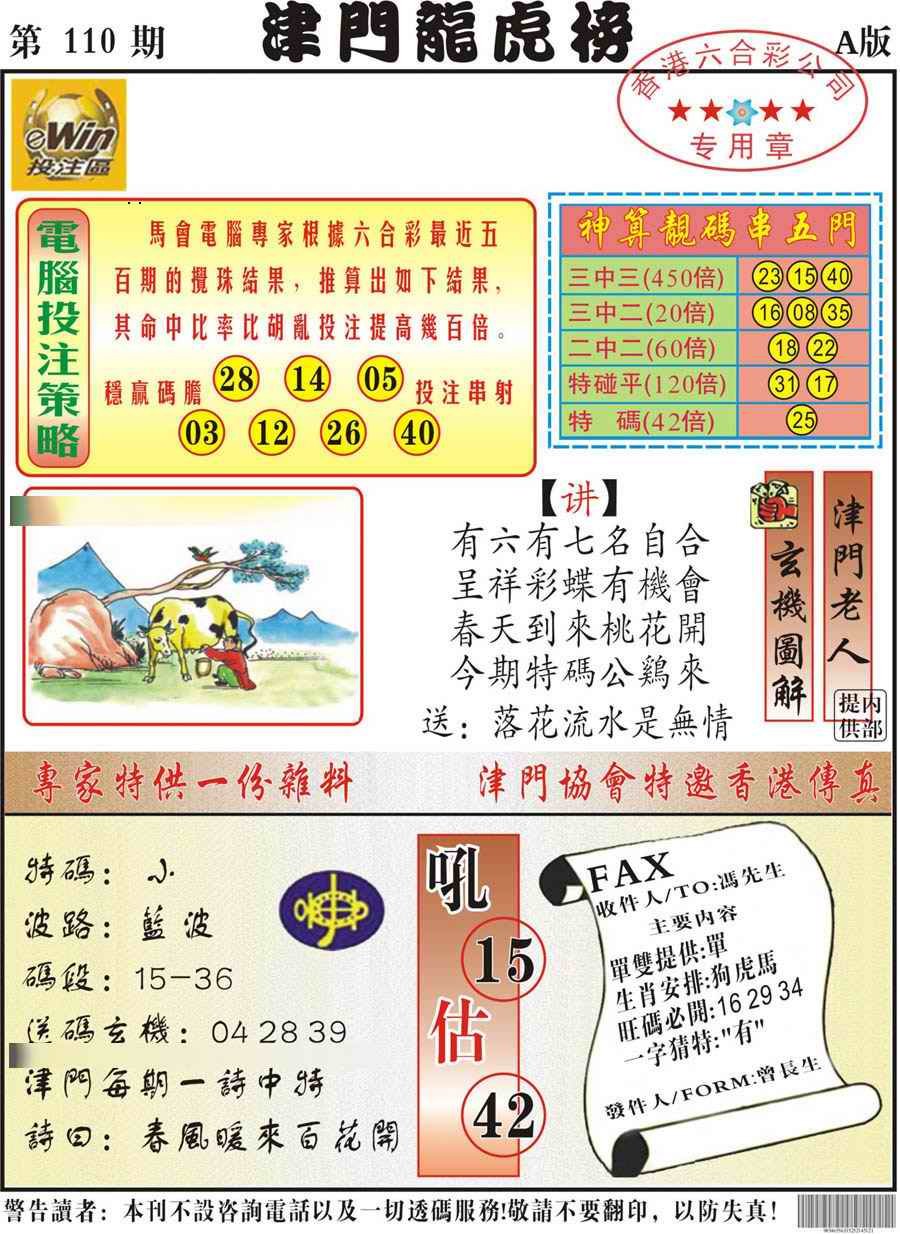 第 110 期
津門龍虎榜
A版
香港六合彩公司
★★★★
专用章
eWin
投注區
電腦投注策略
馬會電腦專家根據六合彩最近五
百期的攪珠結果，推算出如下結果，
其命中比率比胡亂投注提高幾百倍。
穩贏碼膽 28 14 05 投注串射
03 12 26 40
神算靚碼串五門
三中三(450倍) 23 15 40
三中二(20倍) 16 08 35
二中二(60倍) 18 22
特碰平(120倍) 31 17
特 碼(42倍) 25
【讲】
有六有七名自合
呈祥彩蝶有機會
春天到來桃花開
今期特碼公鷄來
送：落花流水是無情
玄機圖解
津門老人
内部提供
專家特供一份雜料
津門協會特邀香港傳真
特碼：小
波路：藍波
碼段：15-36
送碼玄機：04 28 39
津門每期一詩中特
詩曰：春風暖來百花開
吼
15
估
42
FAX
收件人/TO:馮先生
主要内容
單雙提供:單
生肖安排:狗虎馬
旺碼必開:16 29 34
一字猜特:"有"
發件人/FORM:曾長生
警告讀者：本刊不設咨詢電話以及一切透碼服務!敬請不要翻印，以防失真！